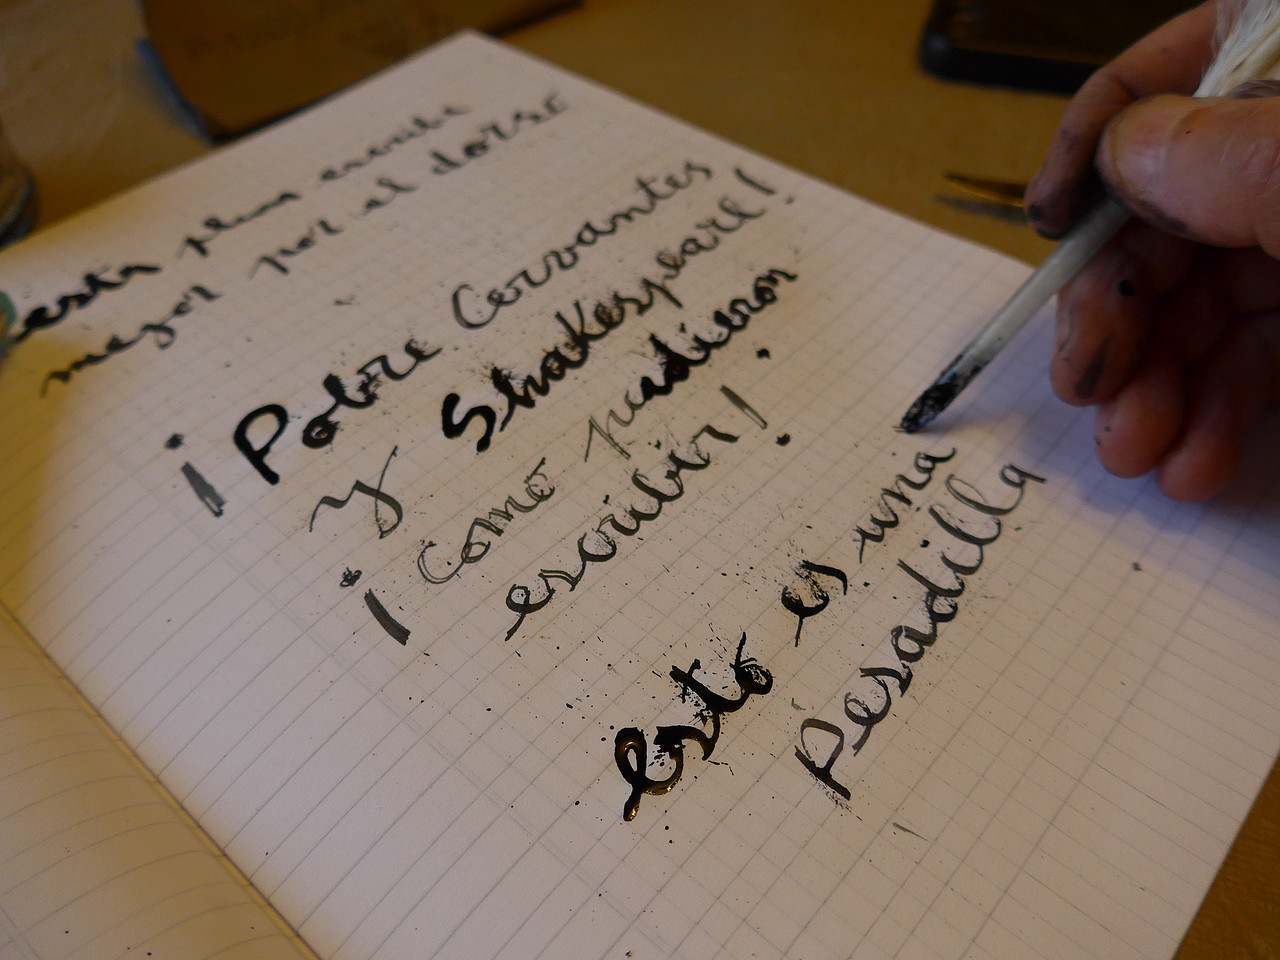 esta pluma escribe
mejor por el dorso
¡Pobre Cervantes
y Shakespeare!
¡como pudieron
escribir!
esto es una
pesadilla